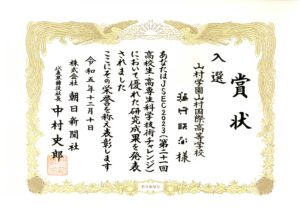 賞状
入選
山村学園山村国際高等学校
様
あなたはJSEC2023(第二十一回
高校生・高専生科学技術チャレンジ)
において優れた研究成果を発表
されました
ここにその栄誉を称え表彰します
令和五年十二月十日
株式会社 朝日新聞社
代表取締役社長 中村史郎